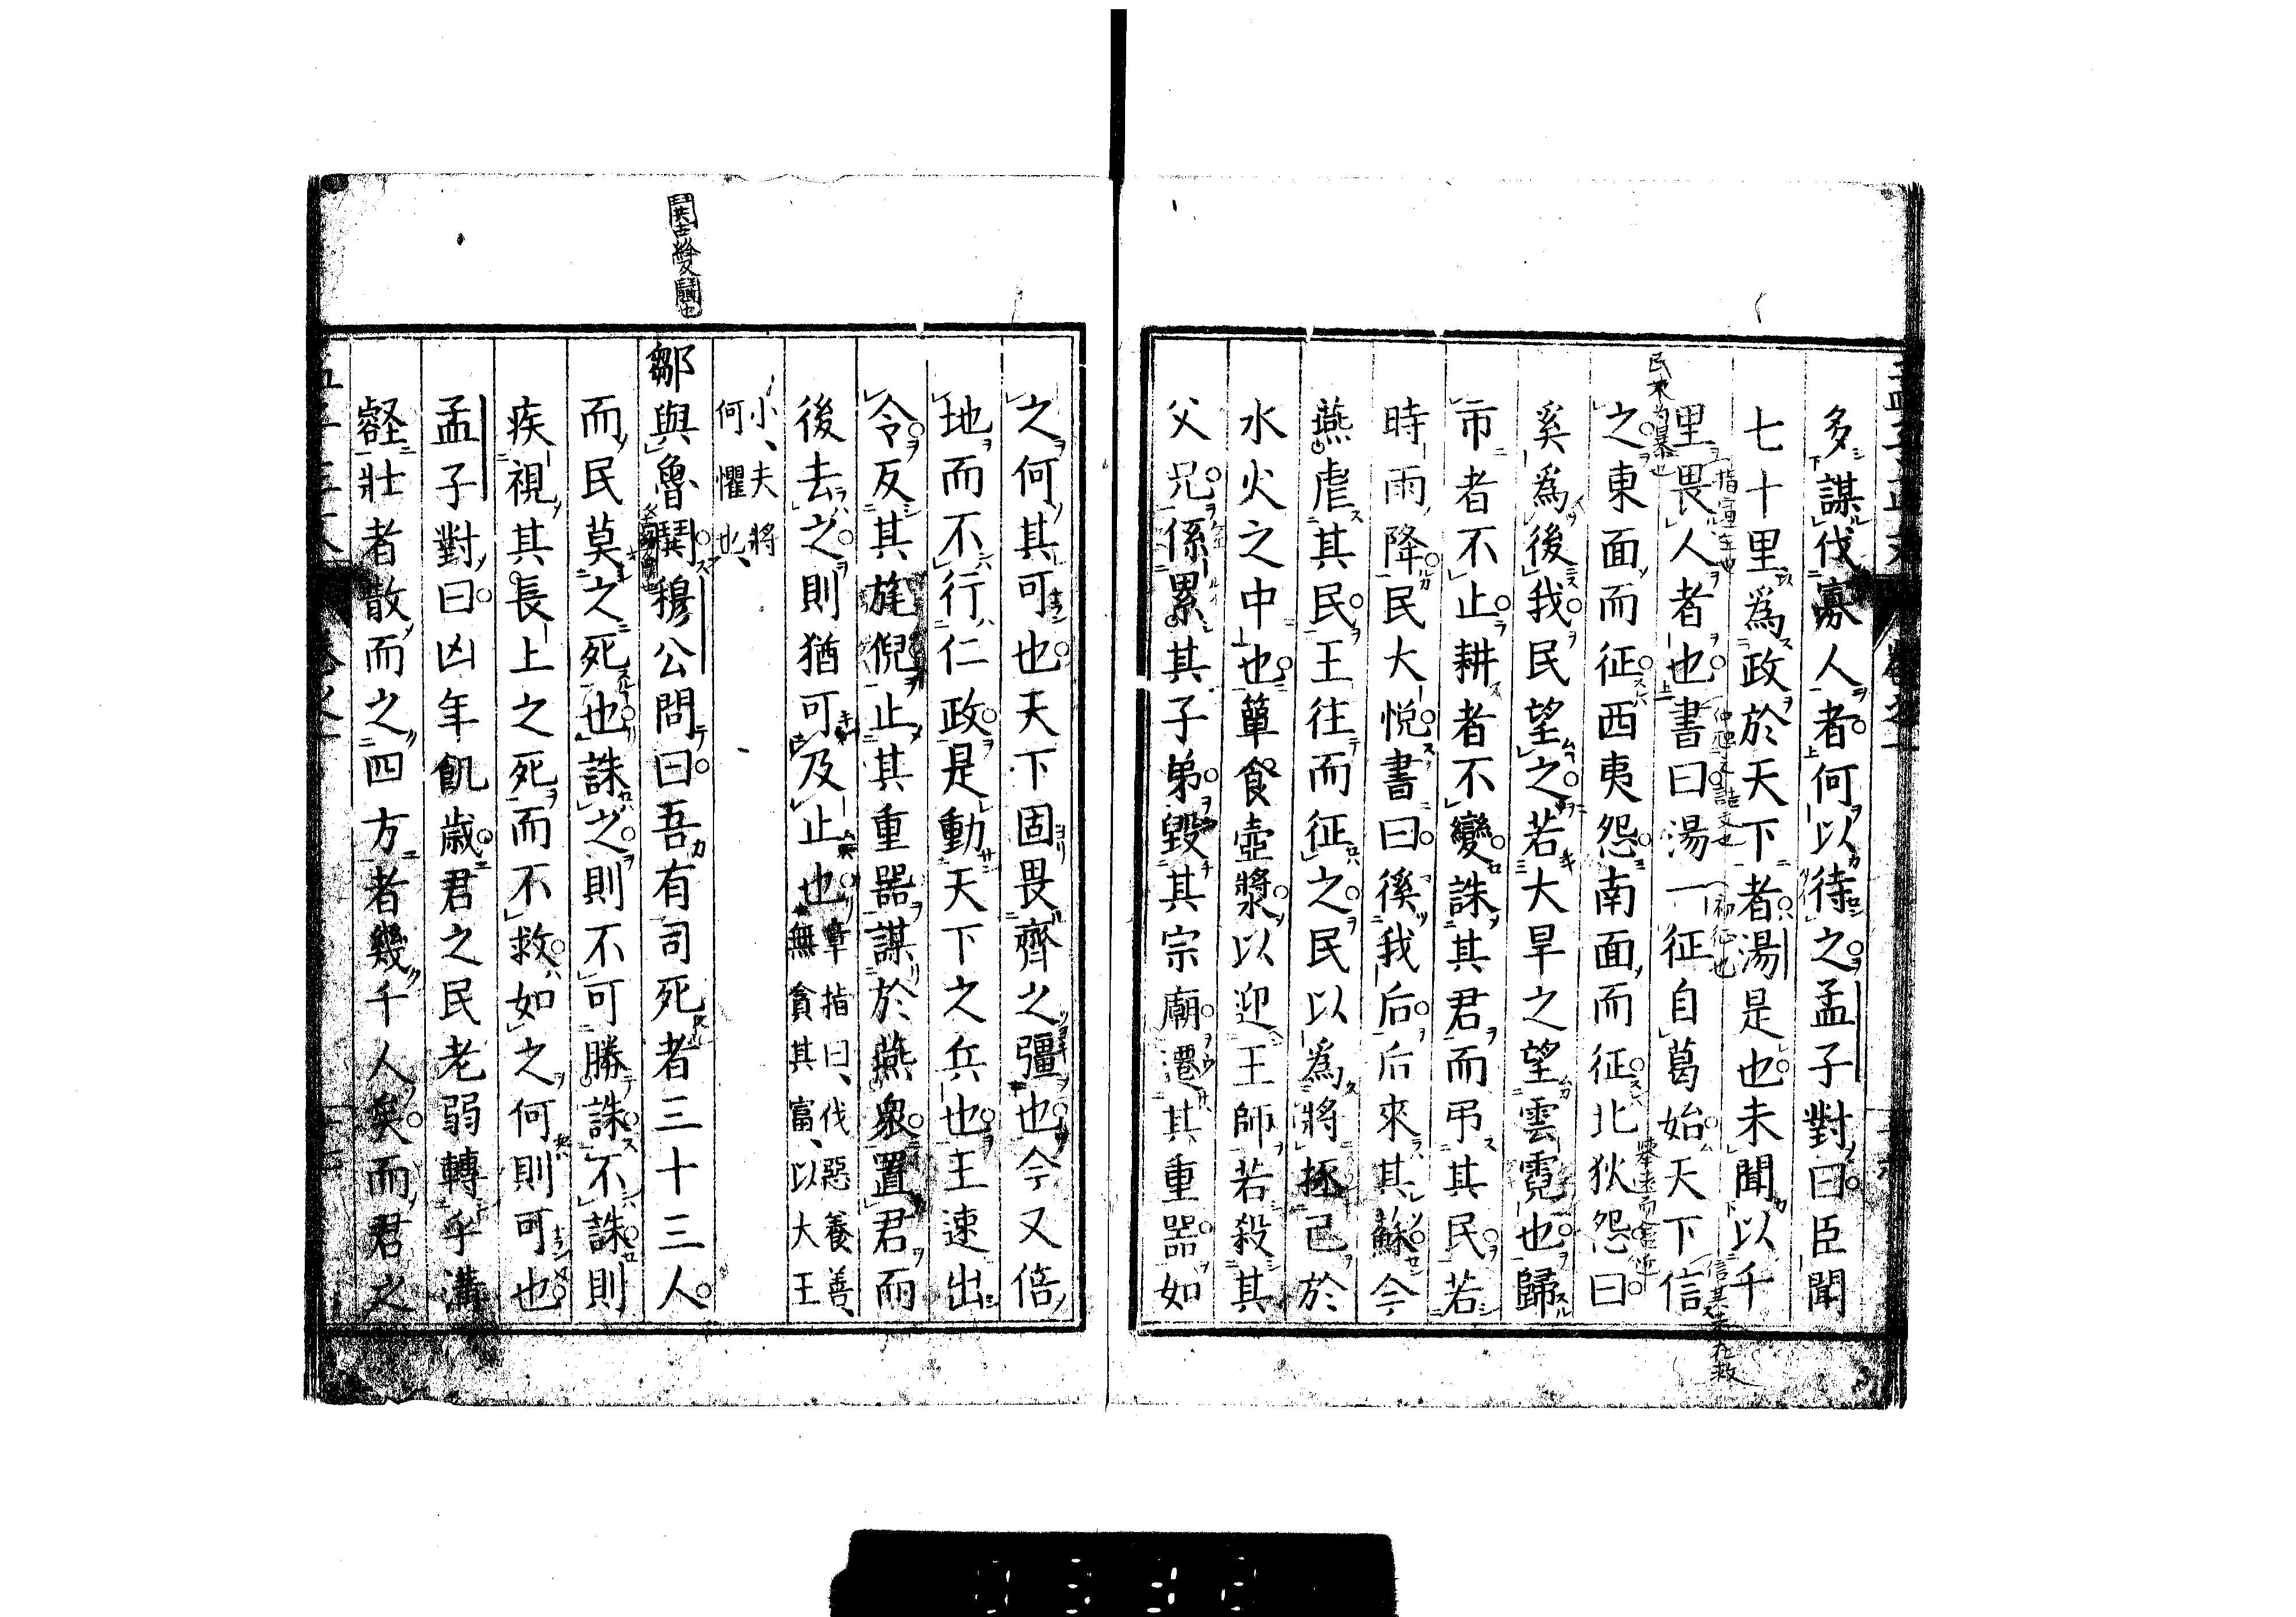 多謀伐寡人者何以待之孟子對曰臣聞
七十里爲政於天下者湯是也未聞以千
里畏人者也書曰湯一征自葛始天下信
之東面而征西夷怨南面而征北狄怨曰
奚爲後我民望之若大旱之望雲霓也歸
市者不止耕者不變誅其君而弔其民若
時雨降民大悅書曰徯我后后來其蘇今
燕虐其民王往而征之民以爲將拯己於
水火之中也簞食壺漿以迎王師若殺其
父兄係累其子弟毀其宗廟遷其重器如
之何其可也天下固畏齊之彊也今又倍
地而不行仁政是動天下之兵也王速出
令反其旄倪止其重器謀於燕衆置君而
後去之則猶可及止也章指曰、伐惡養善、
無貪其富、以大王
小、夫將
何懼也、
鄒與魯鬨穆公問曰吾有司死者三十三人
而民莫之死也誅之則不可勝誅不誅則
疾視其長上之死而不救如之何則可也
孟子對曰凶年飢歲君之民老弱轉乎溝
壑壯者散而之四方者幾千人矣而君之